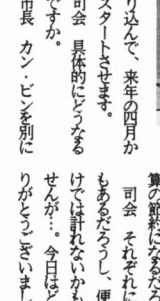 り込んで、来年の四月か
スタートさせます。
司会　具体的にどうなる
ですか。
市長　カン・ビンを別に
算の節約になるだ
司会　それぞれに
もあるだろうし、便
けでは計れないかも
せんが…。今日はど
りがとうございまし